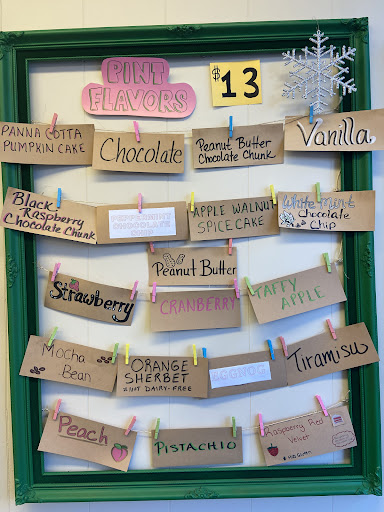 PINT
FLAVORS
$13
PANNA COTTA
PUMPKIN CAKE
Chocolate
Peanut Butter
Chocolate Chunk
Vanilla
Black
Raspberry
Chocolate Chunk
PEPPERMINT
CHOCOLATE
CHIP
APPLE WALNUT
SPICE CAKE
White Mint
Chocolate
Chip
Peanut Butter
Strawberry
CRANBERRY
TAFFY
APPLE
Mocha
Bean
ORANGE
SHERBET
*NOT DAIRY-FREE
EGGNOG
TIRAMISU
Peach
PISTACHIO
Raspberry Red
Velvet